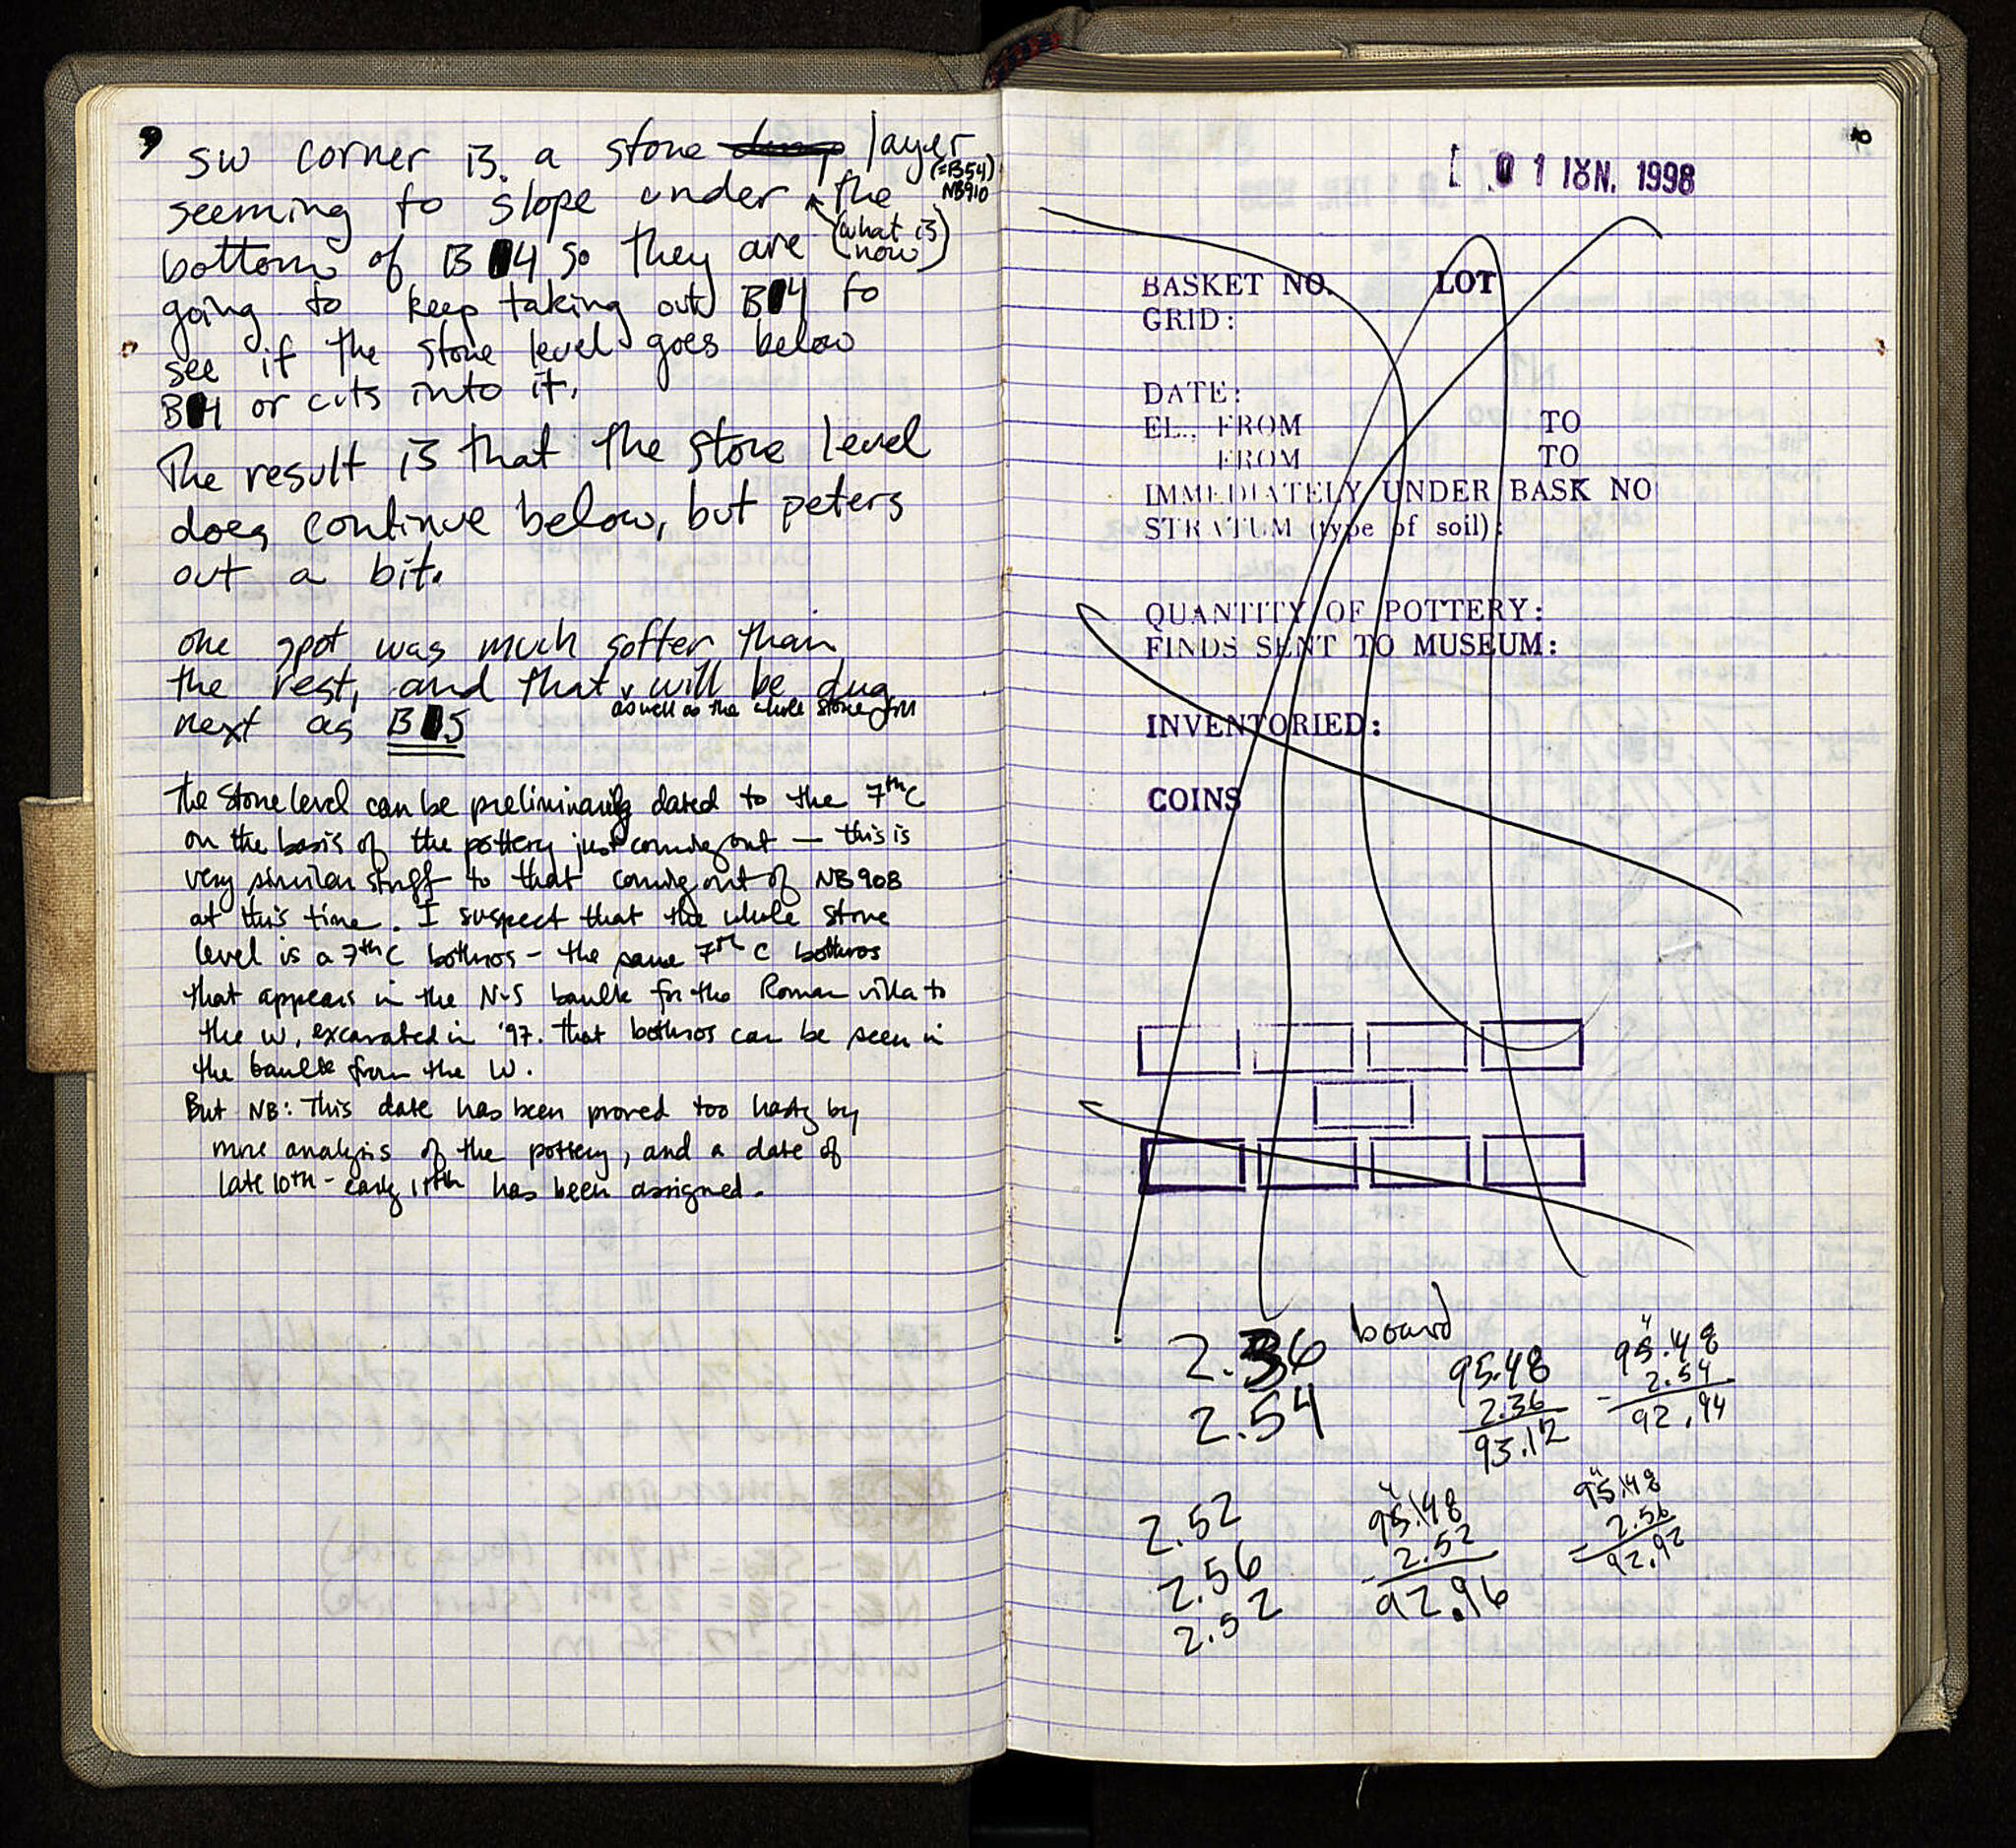 9
SW corner is a stone dump layer
(=B54)
NB910
seeming to slope under the
(what is now)
bottom of B 4 so they are
going to keep taking out B 4 to
see if the stone level goes below
B 4 or cuts into it.
The result is that the stone level
does continue below, but peters
out a bit.
one spot was much softer than
the rest, and that will be dug
as well as the whole stone fill
next as B 5
The stone level can be preliminarily dated to the 7th C
on the basis of the pottery just coming out — this is
very similar stuff to that coming out of NB 908
at this time. I suspect that the whole stone
level is a 7th C bothros - the same 7th C bothros
that appears in the N-S baulk for the Roman villa to
the W, excavated in '97. That bothros can be seen in
the baulk from the W.
But NB: This date has been proved too hasty by
more analysis of the pottery, and a date of
late 10th - early 11th has been assigned.
10
01 ΙΟΥΝ. 1998
BASKET NO. LOT
GRID:
DATE:
EL., FROM TO
FROM TO
IMMEDIATELY UNDER BASK NO
STRATUM (type of soil):
QUANTITY OF POTTERY:
FINDS SENT TO MUSEUM:
INVENTORIED:
COINS
2.36 board
2.54
95.48
2.36
93.12
4
95.148
- 2.54
92.94
2.52
2.56
2.52
4
95.148
- 2.52
92.96
4
95.148
- 2.56
92.92